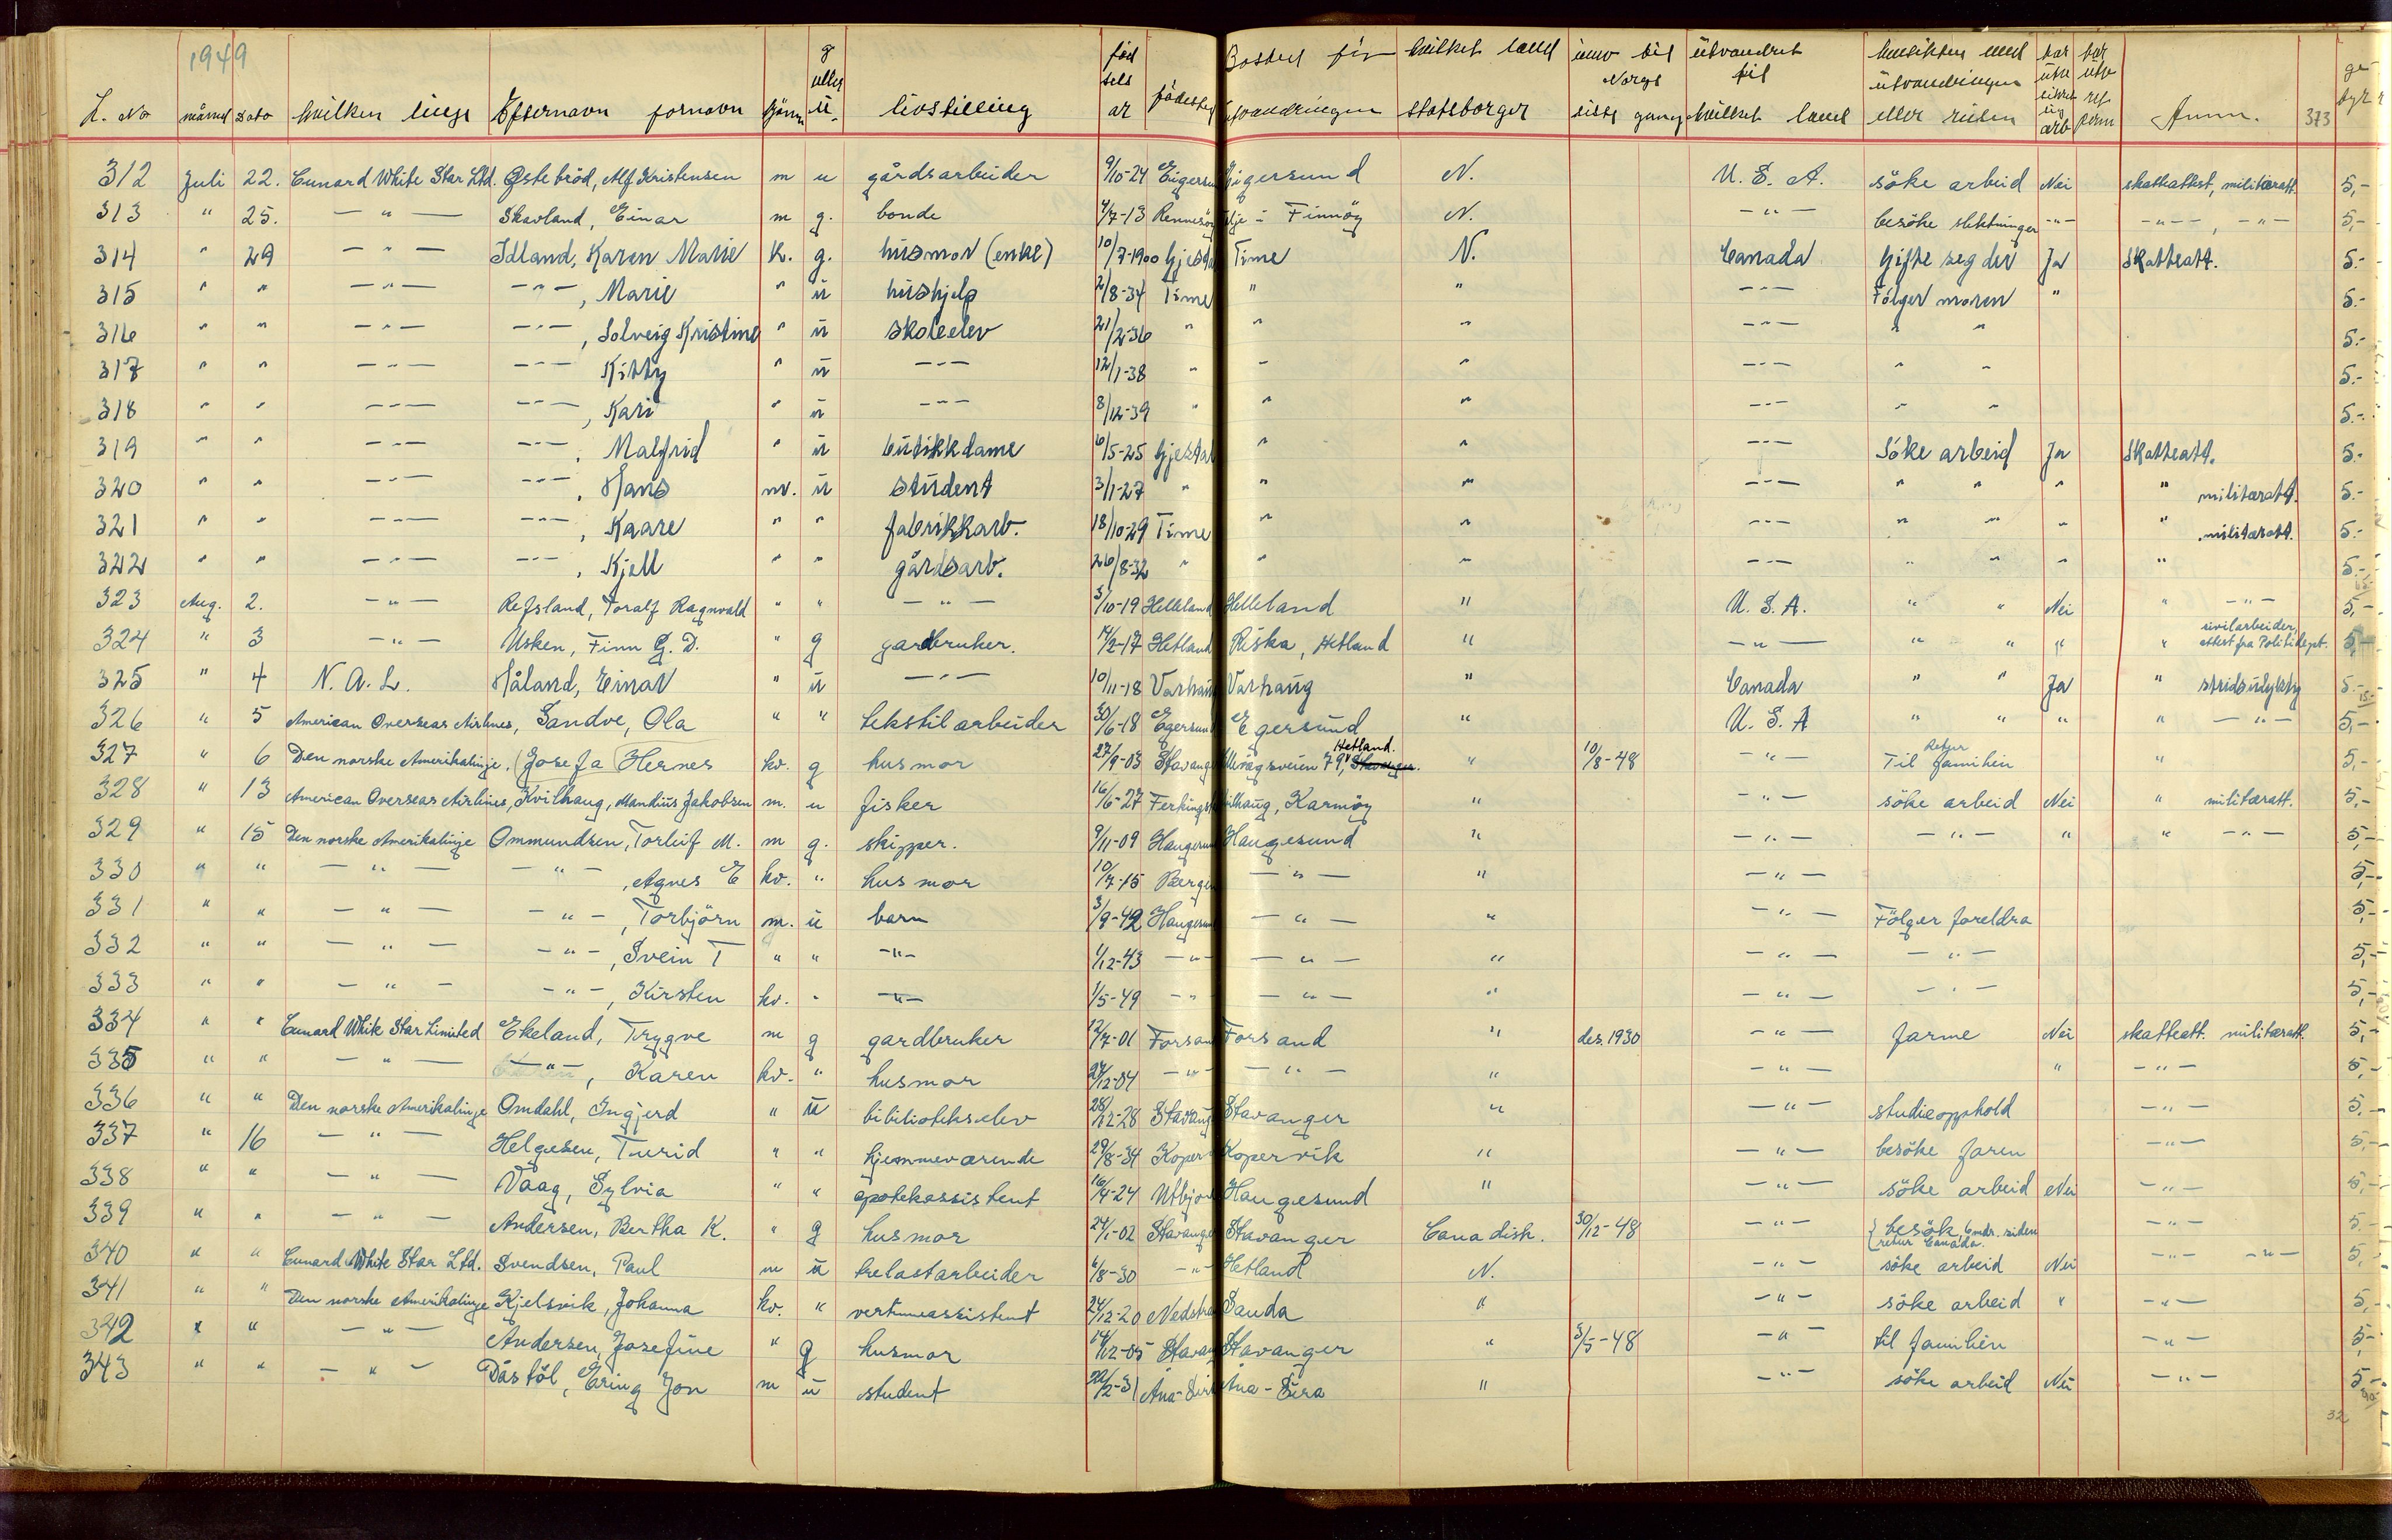 1949
L. No måned Dato hvilken linje Efternavn fornavn kjønn g eller u. livstilling fødsels år fødested Bosted før utvandringen hvilket land statsborger innv til Norge siste gang utvandret til hvilket land hensikten med utvandringen eller reisen har utv sikret sig arb har utv ret penn Anm. 373 gebyr
312 Juli 22. Cunard White Star Ltd. Østebröd, Alf Kristensen m u gårdsarbeider 9/10-24 Eigersun Eigersund N. U. S. A. söke arbeid Nei skatteattest, militæratt. 5,-
313 " 25. - " - Skavland, Einar m g. bonde 4/7-13 Rennesöy i Finnöy N. - " - besöke slektninger - " - - " - , - " - 5,-
314 " 29 - " - Idland, Karen Marie k. g. husmor (enke) 10/7-1900 Gjesda Time N. Canada Gifte seg der Ja Skatteatt. 5.-
315 " " - " - - " - , Marie " u hushjelp 2/8-34 Time " " - " - Fölger moren " 5.-
316 " " - " - - " - , Solveig Kristine " u skoleelev 21/2-36 " " " - " - " " 5.-
317 " " - " - - " - Kitty " u - " - 12/1-38 " " " - " - " " 5.-
318 " " - " - - " - , Kari " u - " - 8/12-39 " " " - " - " " 5.-
319 " " - " - - " - , Malfrid " u butikkdame 6/5-25 Gjestal " " - " - Söke arbeid Ja Skatteatt. 5.-
320 " " - " - - " - , Hans m. u student 3/1-27 " " " - " - " " " " militæratt. 5.-
321 " " - " - - " - , Kaare " " fabrikkarb. 18/10-29 Time " " - " - " " " " militæratt. 5.-
322 " " - " - - " - , Kjell " " gårdsarb. 26/8-32 " " " - " - " " " " 5.-
323 Aug. 2. - " - Refsland, Toralf Ragnvald " " - " - 3/10-19 Helleland Helleland " U. S. A. " " Nei " - " - 5,-
324 " 3 - " - Usken, Finn G. D. " g gardbruker. 14/2-17 Hetland Riska, Hetland " - " - " " " " sivilarbeider, attest fra Politidept. 5,-
325 " 4 N. A. L. Håland, Einar " u - " - 10/11-18 Varhau Varhaug " Canada " " Ja " stridsudyktig 5.-
326 " 5 American Overseas Airlines, Sandve, Ola " " tekstilarbeider 30/6-18 Egersun Egersund " U. S. A " " " " - " - 5,-
327 " 6 Den norske Amerikalinje, (Josefa Hernes kv. g husmor 27/9-03 Stavang 79, Stavanger. Hetland. " 10/8-48 - " - Retur Til familien " 5,-
328 " 13 American Overseas Airlines, Kvilhaug, Mandius Jakobsen m. u fisker 16/6-27 Ferkingst Kvilhaug, Karmöy " - " - söke arbeid Nei " militæratt. 5,-
329 " 15 Den norske Amerikalinje Ommundsen, Torleif M. m g. skipper. 9/11-09 Haugesun Haugesund " - " - - " - " " - " - 5,-
330 " " - " - - " - , Agnes E kv. " husmor 10/7-15 Berge - " - " - " - 5,-
331 " " - " - - " - , Torbjörn m. u barn 3/9-42 Haugesun - " - " - " - Fölger foreldra 5,-
332 " " - " - - " - , Svein T " " - " - 1/12-43 - " - - " - " - " - - " - 5,-
333 " " - " - - " - , Kirsten kv. " - " - 1/5-49 - " - - " - " - " - - " - 5,-
334 " " Cunard White Star Limited Ekeland, Trygve m g gardbruker 12/7-01 Forsan Forsand " des. 1930 - " - farme Nei skatteatt. militæratt. 5,-
335 " " - " - - " - , Karen kv. " husmor 24/12-04 - " - - " - " - " - " - " - 5,-
336 " " Den norske Amerikalinje Omdahl, Ingjerd " u bibilioteks elev 28/12-28 Stavang Stavanger " - " - studieopphold - " - 5,-
337 " 16 - " - Helgesen, Turid " " hjemmeværende 29/8-34 Koper Kopervik " - " - besöke faren - " - 5,-
338 " " - " - Vaag, Sylvia " " apotekassistent 16/4-24 Utbjo Haugesund " - " - söke arbeid Nei - " - 5,-
339 " " - " - Andersen, Bertha K. " g husmor 24/1-02 Stavange Stavanger Canadisk. 30/12-48 - " - besök, 6 mdr. siden retur Canada. - " - 5,-
340 " " Cunard White Star Ltd. Svendsen, Paul m u trelastarbeider 6/8-30 - " - Hetland N. - " - söke arbeid Nei - " - - " - 5,
341 " " Den norske Amerikalinje Kjelsvik, Johanna kv. " 24/12-20 Nedstra Sauda " - " - söke arbeid " - " - 5,-
342 " " - " - Andersen, Josefine " g husmor 14/12-05 Stavan Stavanger " 3/5-48 - " - til familien - " - 5,-
343 " " - " - Dåstöl, Ering Jon m u student 22/2-31 Åna-Sir Åna-Sira " - " - söke arbeid Nei - " - 5,-
32